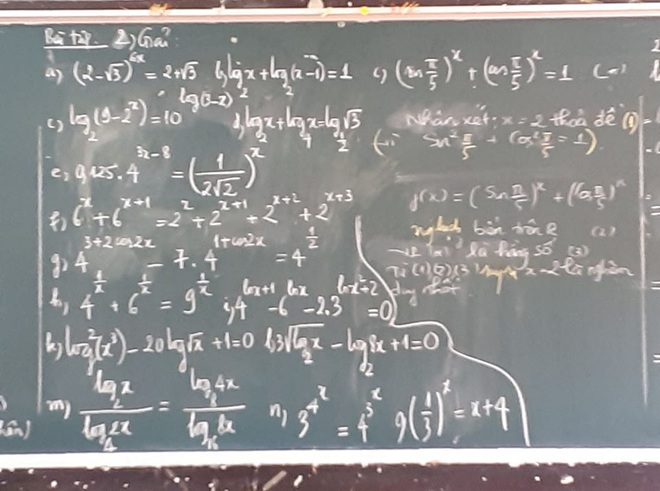 Bài tập. 2) Giải:
a) (2-√3)^{6x} = 2+√3 b) log₂x + log₂(x-1) = 1 c) (sin π/5)^x + (cos π/5)^x = 1
c) log₂(9-2^x) = 10^{log(3-x)} d) log₂x + log₄x = log_{1/2}√3
Nhận xét: x = 2 thoả đề (1)
Sin² π/5 + Cos² π/5 = 1)
e) 0,125.4^{3x-8} = (1/(2√2))^x
f(x) = (Sin π/5)^x + (Cos π/5)^x
f) 6^x + 6^{x+1} = 2^x + 2^{x+1} + 2^{x+2} + 2^{x+3}
nghịch biến trên R (2)
g) 4^{3+2cos2x} - 7.4^{1+cos2x} = 4^{1/2}
là hằng số (3)
Từ (1)(2)(3) x=2 là nghiệm
duy nhất
h) 4^{1/x} + 6^{1/x} = 9^{1/x} i) 4^{lnx+1} - 6^{lnx} - 2.3^{lnx²+2} = 0
k) log²(x³) - 20log√x + 1 = 0 l) 3√(log₂x) - log₂8x + 1 = 0
m) log₂x/log₄2x = log₈4x/log₁₆8x n) 3^{4^x} = 4^{3^x} 9(1/3)^x = x+4